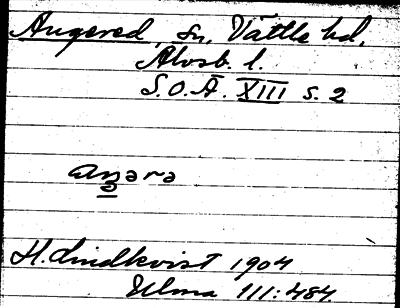 Angered, sn, Vättle hd,
Älvsb. l.
S.O.Ä. XIII s. 2
aŋərə
H. Lindkvist 1904
Ulma 111:484